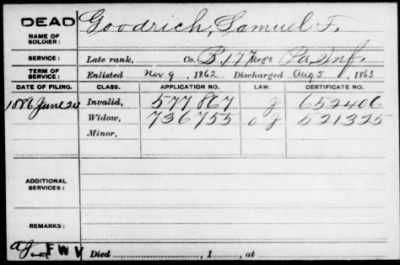 DEAD Goodrich, Samuel F.
NAME OF SOLDIER:
SERVICE: Late rank, Co. B. 177 Reg't Pa. Inf.
TERM OF SERVICE: Enlisted Nov 9, 1862 Discharged Aug 5, 1863
DATE OF FILING. CLASS. APPLICATION NO. LAW. CERTIFICATE NO.
1886 June 24 Invalid, 577867 g 652406
Widow, 736755 g 521325
Minor,
ADDITIONAL SERVICES:
REMARKS:
F W V Died , 1 , at